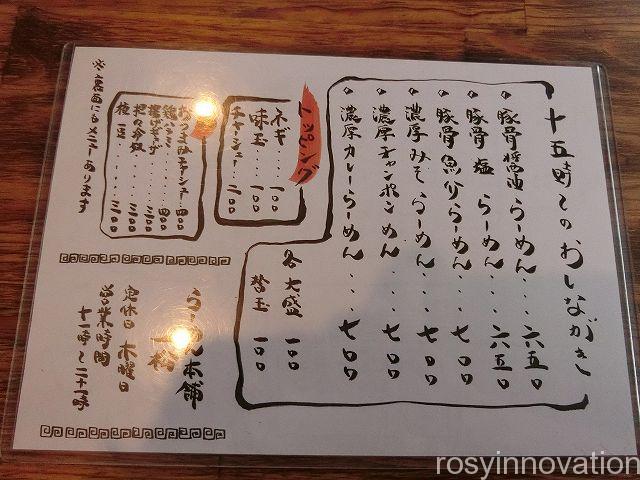 十五時〜のおしながき
豚骨醤油らーめん・・・六五〇
豚骨塩らーめん・・・六五〇
豚骨魚介らーめん・・・七〇〇
濃厚みそらーめん・・・七〇〇
濃厚チャンポンめん・・・七〇〇
濃厚カレーらーめん・・・七〇〇
各大盛 一〇〇
替玉 一〇〇
トッピング
ネギ・・・一〇〇
味玉・・・一〇〇
チャーシュー・・・二〇〇
おつまみチャーシュー 四〇〇
四〇〇
三〇〇
三〇〇
三〇〇
※裏面にもメニューあります
本舗
定休日 木曜日
営業時間
十一時〜二十一時
rosyinnovation